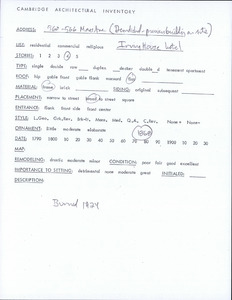 CAMBRIDGE ARCHITECTURAL INVENTORY
ADDRESS:
USE: residential commercial religious Irving House hotel
STORIES: 1 2 3 4 5
TYPE: single double row duplex decker double d. tenement apartment
ROOF: hip gable front gable flank mansard flat
MATERIAL: frame brick SIDING: original subsequent
PLACEMENT: narrow to street broad to street square
ENTRANCE: flank front side center
STYLE: L.Geo, Gk.Rev, Ital, Mans, Med, Q.A, C.Rev, None
ORNAMENT: little moderate elaborate 1869
DATE: 1790 1800 10 20 30 40 50 60 70 80 90 1900 10 20 30
MAP:
REMODELING: drastic moderate minor CONDITION: poor fair good excellent
IMPORTANCE TO SETTING: detrimental none moderate great INITIALED:
DESCRIPTION:
Burned 1924